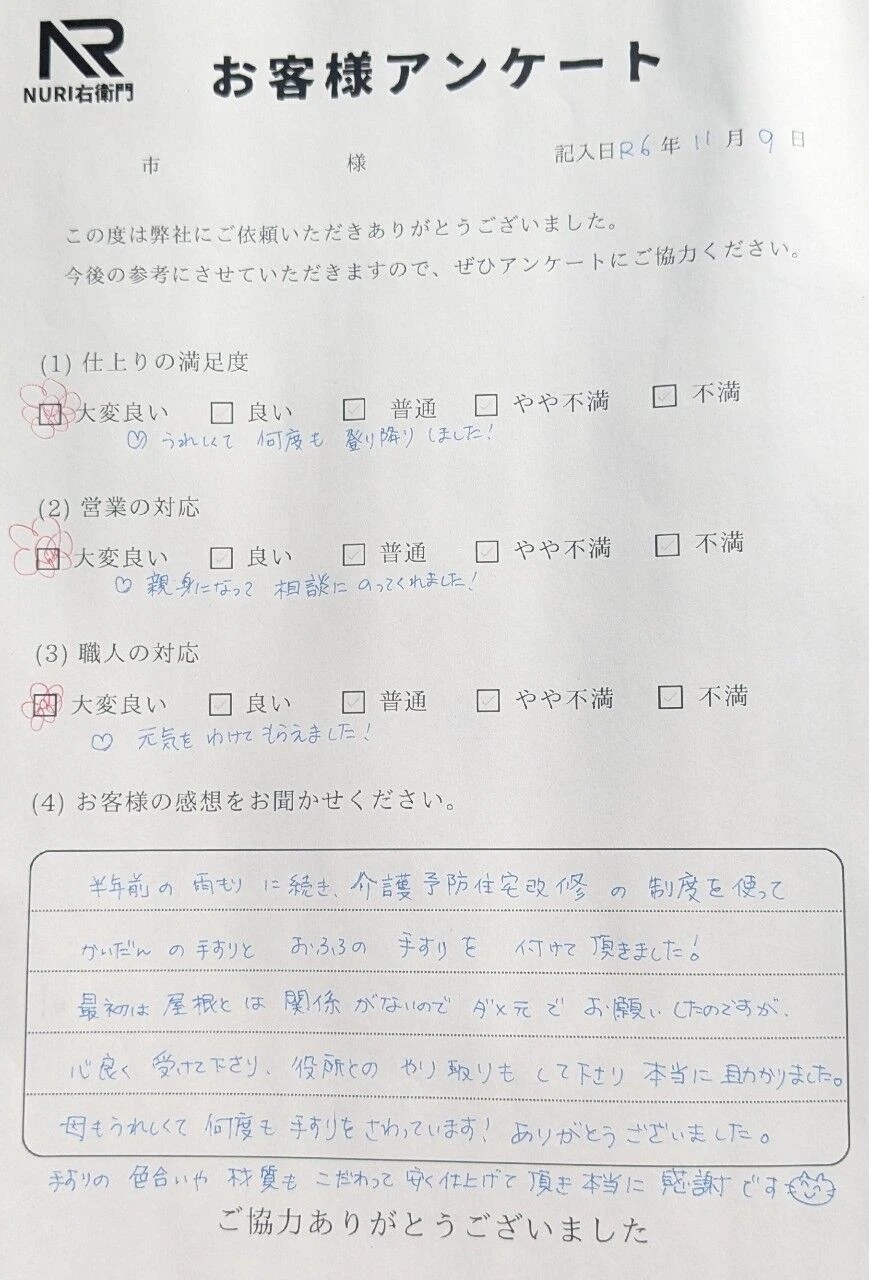 NR
NURI右衛門
お客様アンケート
市 様 記入日R6年11月9日
この度は弊社にご依頼いただきありがとうございました。
今後の参考にさせていただきますので、ぜひアンケートにご協力ください。
(1) 仕上りの満足度
大変良い 良い 普通 やや不満 不満
♡ うれしくて 何度も 登り降りしました!
(2) 営業の対応
大変良い 良い 普通 やや不満 不満
♡ 親身になって 相談に のってくれました!
(3) 職人の対応
大変良い 良い 普通 やや不満 不満
♡ 元気を わけて もらえました!
(4) お客様の感想をお聞かせください。
半年前の 雨もり に続き、介護予防住宅改修 の 制度を使って
かいだん の手すりと おふろの 手すり を 付けて 頂きました!
最初は 屋根とは 関係 がないので ダメ元で お願い したのですが、
心良く 受けて下さり、役所との やり取りも して下さり 本当に 助かりました。
母もうれしくて 何度も 手すりをさわっています! ありがとうございました。
手すりの 色合いや 材質も こだわって 安く仕上げて 頂き 本当に 感謝です
ご協力ありがとうございました